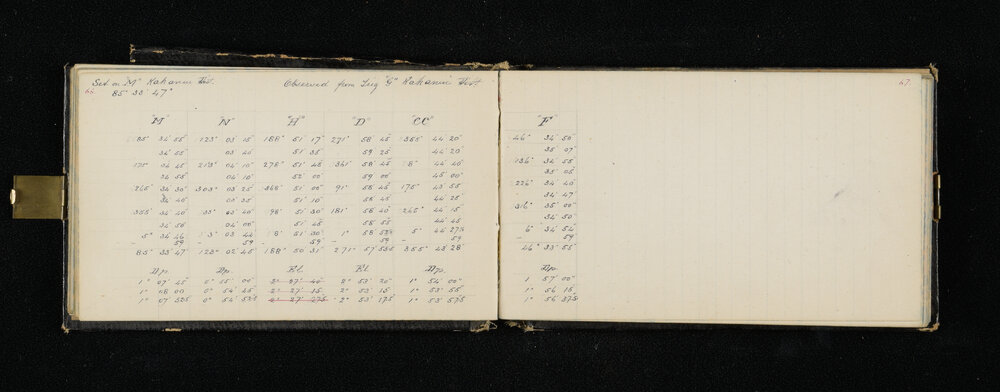 Set on "M" Kakanui Dist. Observed from Trig "G" Kakanui Dist.
66. 85° 33' 47"
67.
"M" "N" "H" "D" "CC" "F"
85° 34' 55" 123° 03' 15" 188° 51' 17" 271° 58' 45" 355° 44' 20" 46° 34' 50"
34 55 03 40 51 35 59 25 44 20 35 07
175° 04' 45" 213° 04' 10" 278° 51' 45" 361° 58' 45" 8° 44' 40" 136° 34' 55"
34 55 04 10 52 00 59 00 45 00 35 05
265° 34' 30" 303° 03' 25" 368° 51' 05" 91° 58' 45" 175° 43' 55" 226° 34' 40"
34 40 03 35 51 10 58 45 44 25 34 47
355° 34' 40" 33° 03' 40" 98° 51' 30" 181° 58' 40" 265° 44' 15" 316° 35' 00"
34 50 04 00 51 45 58 55 44 45 34 50
5° 34 46 3° 03 44 8° 51 30 1° 58 52.5 5° 44 27.5 6° 34 54
- 59 - 59 - 59 - 59 - 59 - 59
85° 33' 47 123° 02' 45" 188° 50' 31" 271° 57' 53.5 355° 43' 28" 46° 33' 55"
Dp. Dp. El. El. Dp. Dp.
1° 07' 45 0° 55' 00 2° 27' 40 2° 53' 20" 1° 54' 00" 1 57' 00"
1° 08 00 0° 54' 45 2° 27' 15 2° 53' 15 1° 53' 55 1° 56' 15
1° 07' 52.5 0° 54' 52.5 2° 27' 27.5 2° 53' 17.5 1° 53' 57.5 1° 56' 37.5